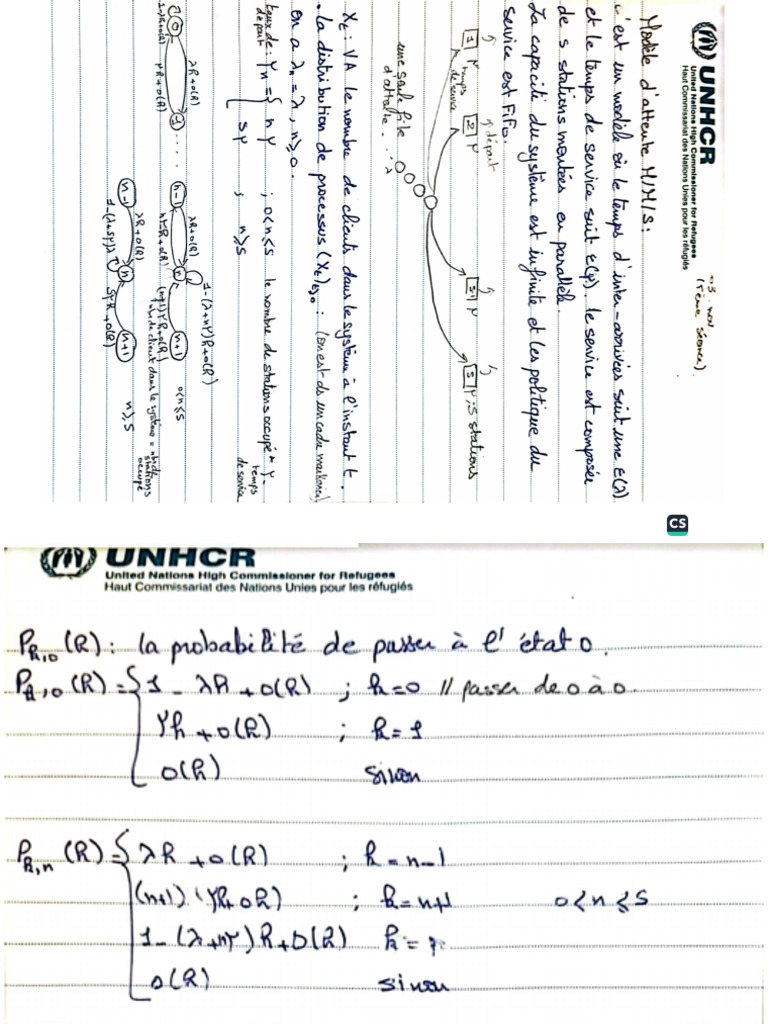 UNHCR
United Nations High Commissioner for Refugees
Haut Commissariat des Nations Unies pour les réfugiés
03. nov
(5ème séance).
Modèle d'attente M/M/S:
c'est un modèle où le temps d'inter-arrivées suit une ε(λ)
et le temps de service suit ε(μ). le service est composée
de s stations montées en parallèle.
La capacité du système est infinie et les politique du
service est FiFo.
1 μ
temps de service
2 μ
départ
s-1 μ
s μ ; s stations
une seule file
d'attente... λ
Xt : VA le nombre de clients dans le système à l'instant t.
. la distribution de processus (Xt)t≥0 : (on est ds un cadre markovien)
on a λn = λ, n≥0.
taux de départ : μn = { nμ ; 0<n≤s le nombre de stations occupé * μ temps de service
sμ ; n≥s
0 1 .... n-1 n n+1 0<n≤s
λh+o(h)
1-λh+o(h)
μh+o(h)
λh+o(h)
1-(λ+nμ)h+o(h)
nμh+o(h)
(n+1)μh+o(h)
nbr de client dans le système = nbr de stations occupé
n-1 n n+1 n≥s
λh+o(h)
1-(λ+sμ)h
sμh+o(h)
CS
UNHCR
United Nations High Commissioner for Refugees
Haut Commissariat des Nations Unies pour les réfugiés
Pk,0 (h) : la probabilité de passer à l'état 0.
Pk,0 (h) = { 1 - λh + o(h) ; k=0 // passer de 0 à 0.
μh + o(h) ; k = 1
o(h) sinon
Pk,n (h) = { λh + o(h) ; k = n-1
(n+1) (μh+oh) ; k = n+1 0<n≤s
1-(λ+nμ)h+o(h) k = n
o(h) sinon